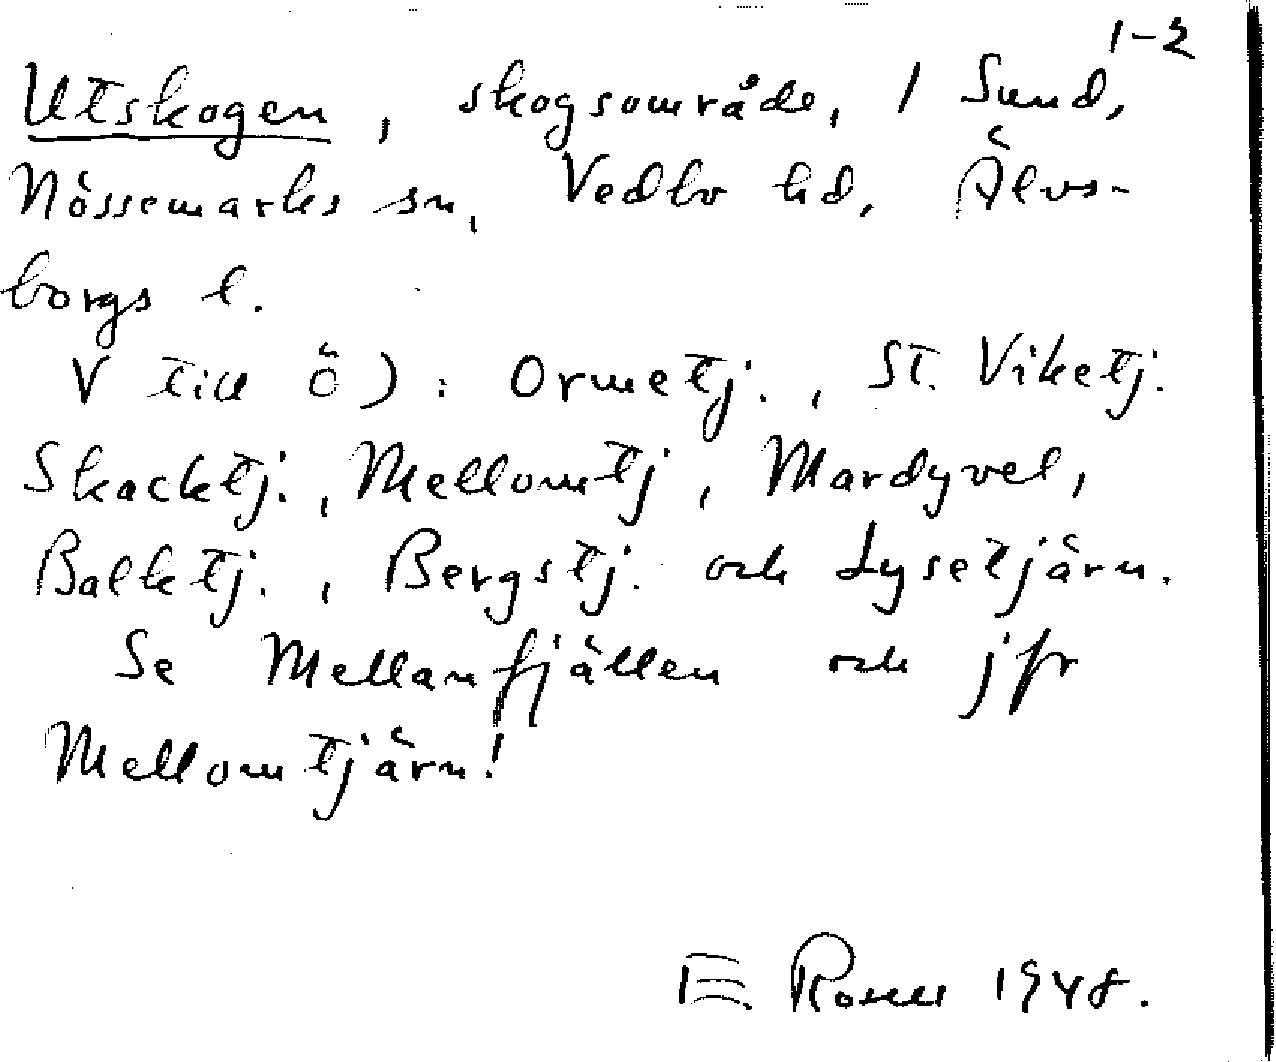 Utskogen, skogsområde, 1 Sund, 1-2
Nössemarks sn, Vedbo hd, Älvs-
borgs l.
V till Ö): Ormetj., St. Viketj.
Skacktj., Mellomtj, Mardyvel,
Balktj., Bergstj. och Lysetjärn.
Se Mellanfjällen och jfr
Mellomtjärn!
E. Rosell 1948.